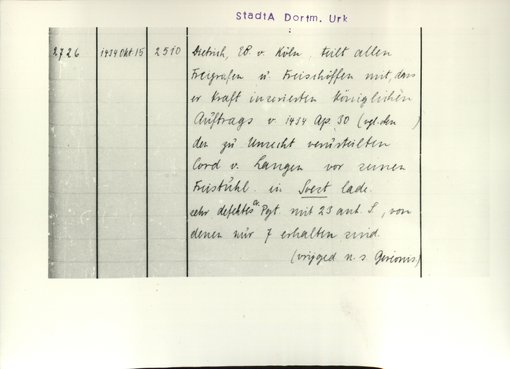 StadtA Dortm. Urk
2726 1434 Okt 15 2510 Dietrich, EB. v. Köln, teilt allen
Freigrafen u Freischöffen mit, dass
er kraft inserierten Königlichen
Auftrags v 1434 Ap. 30 (vgl. den )
den zu Unrecht verurteilten
Cord v. Langen vor seinen
Freistuhl in Soest lade.
sehr defektes Or Pgt. mit 23 anh. S, von
denen nur 7 erhalten sind.
n. s. Gereonis)